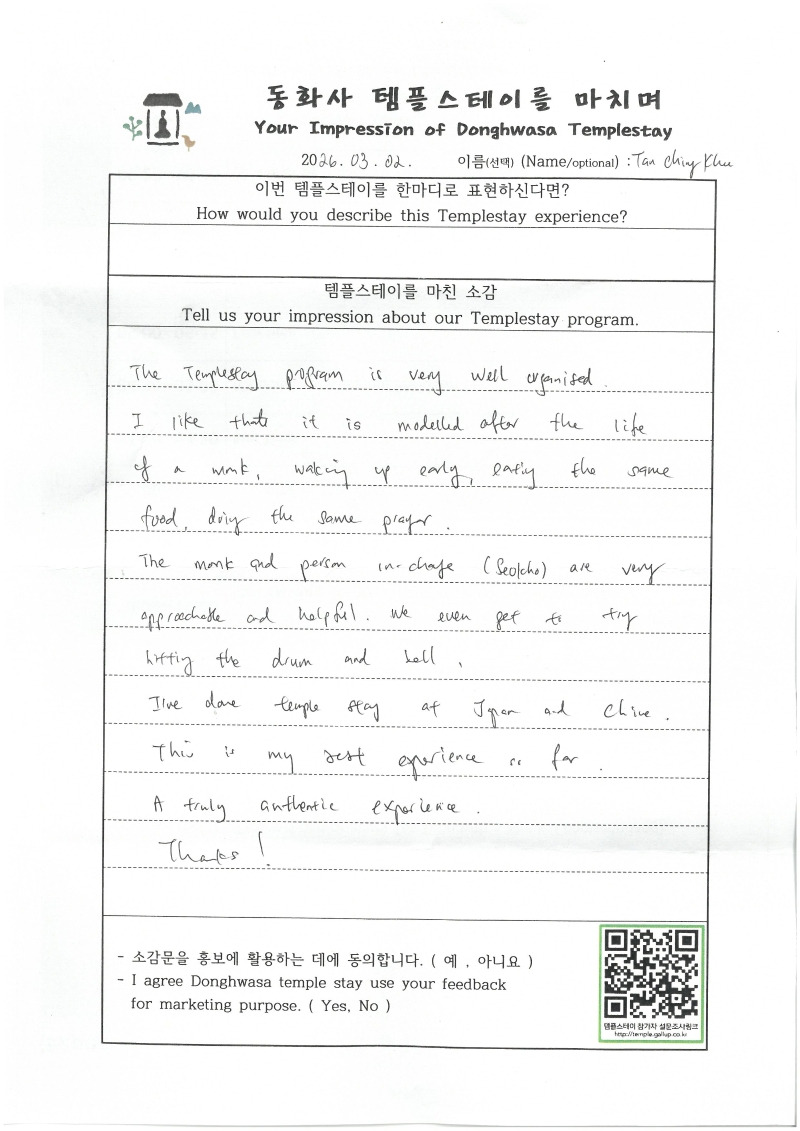 동화사 템플스테이를 마치며
Your Impression of Donghwasa Templestay
2026. 03. 02. 이름(선택) (Name/optional) : Tan Ching Khee
이번 템플스테이를 한마디로 표현하신다면?
How would you describe this Templestay experience?
템플스테이를 마친 소감
Tell us your impression about our Templestay program.
The Templestay program is very well organised.
I like that it is modelled after the life
of a monk, waking up early, eating the same
food, doing the same prayer.
The monk and person in-charge (Seolcho) are very
approachable and helpful. We even get to try
hitting the drum and bell.
I've done temple stay at Japan and China.
This is my best experience so far.
A truly authentic experience.
Thanks!
- 소감문을 홍보에 활용하는 데에 동의합니다. ( 예 , 아니요 )
- I agree Donghwasa temple stay use your feedback
for marketing purpose. ( Yes, No )
템플스테이 참가자 설문조사링크
http://temple.gallup.co.kr